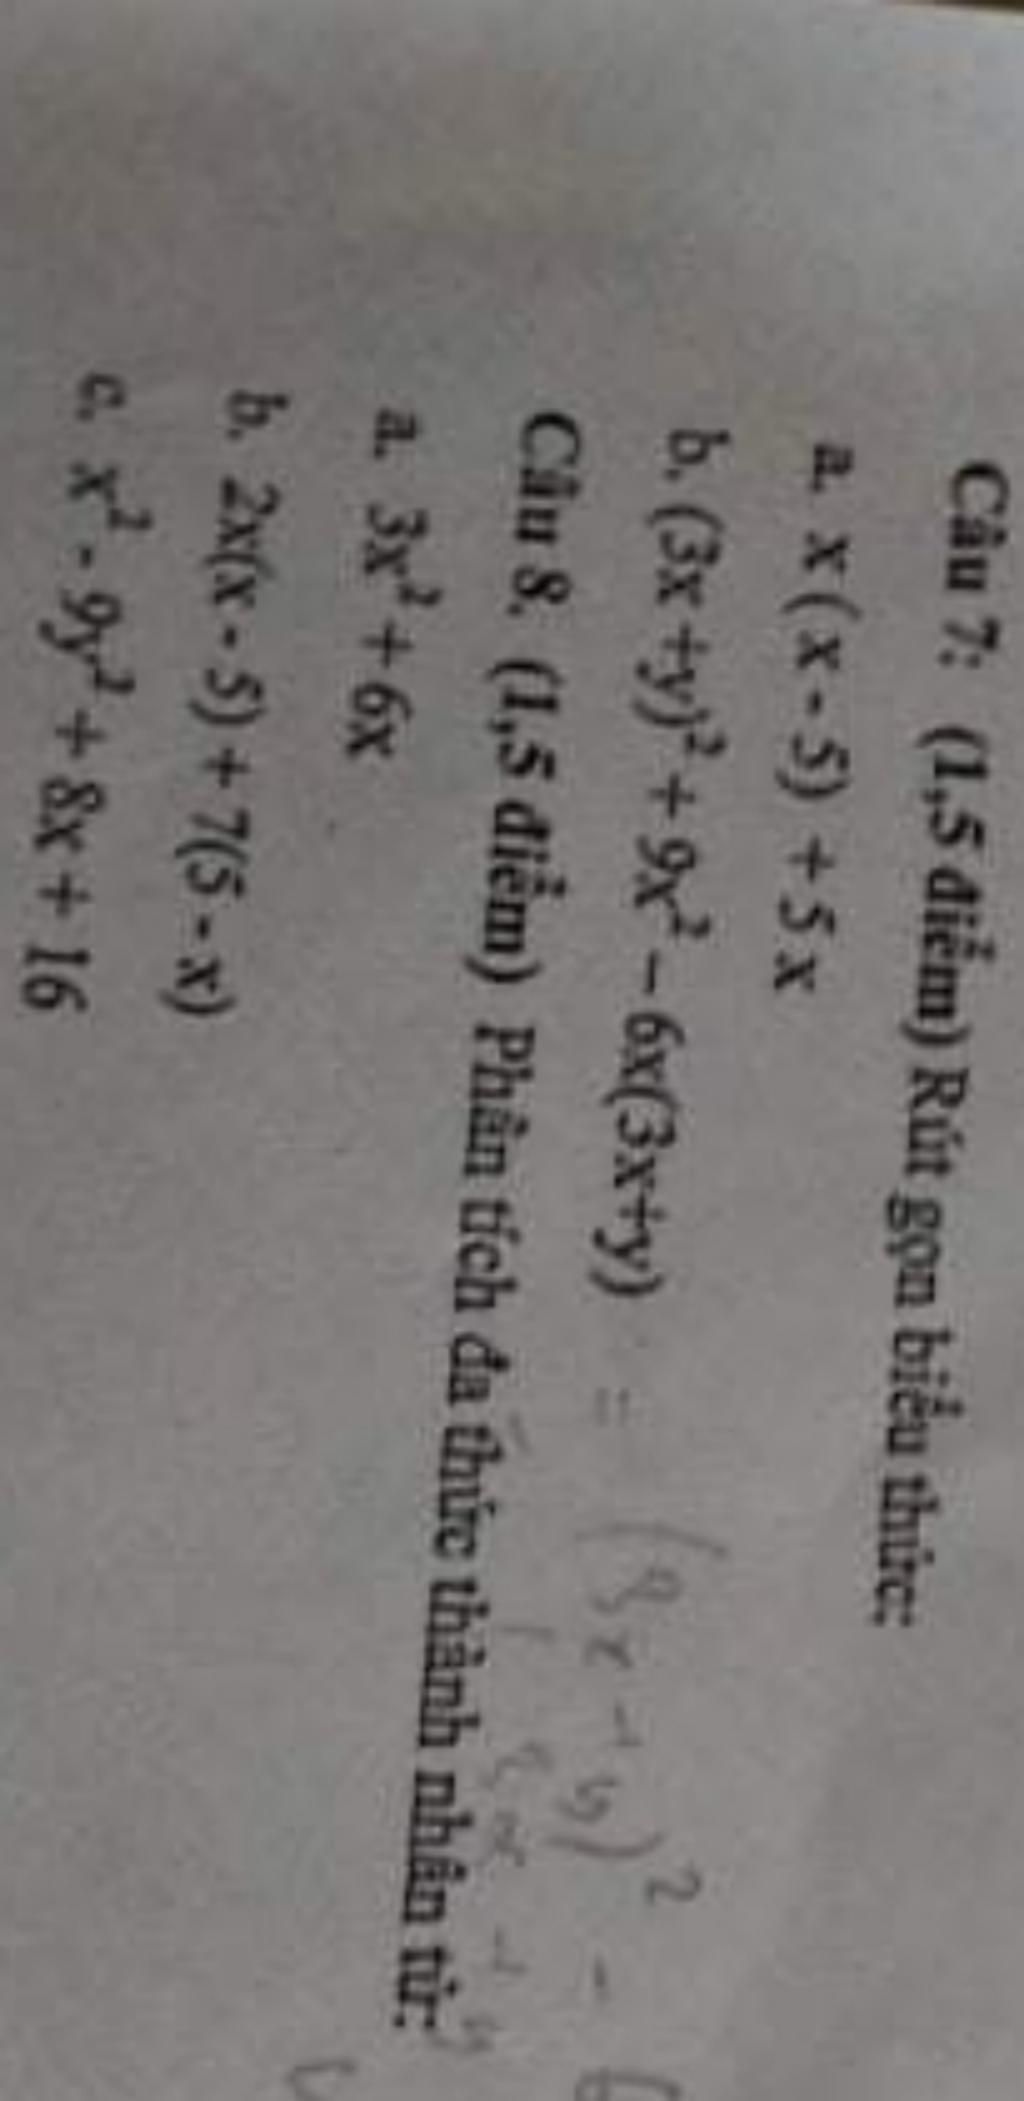 Câu 7: (1,5 điểm) Rút gọn biểu thức:
a. x(x - 5) + 5x
b. (3x+y)² + 9x² − 6x(3x+y) = (3x + y)² -
Câu 8. (1,5 điểm) Phân tích đa thức thành nhân tử:
a. 3x² + 6x
b. 2x(x - 5) + 7(5 - x)
c. x² - 9y² + 8x + 16